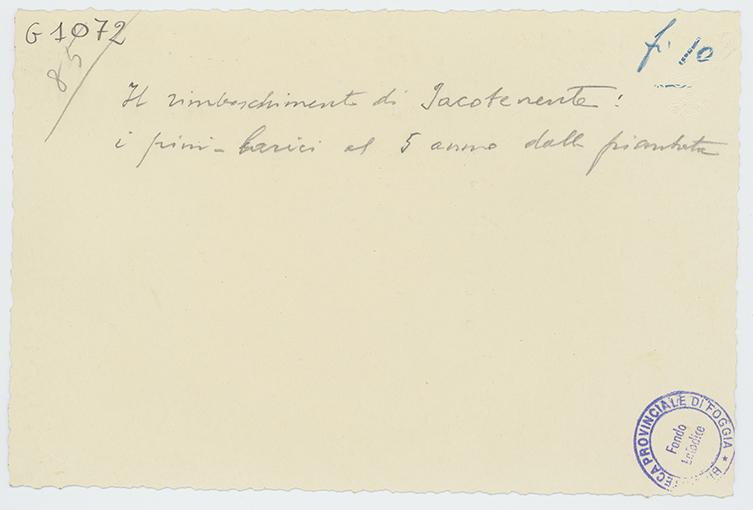 G 1072
85
fi 10
Il rimboschimento di Jacotenente:
i pini-larici al 5 anno dalla piantata
BIBLIOTECA PROVINCIALE DI FOGGIA
Fondo